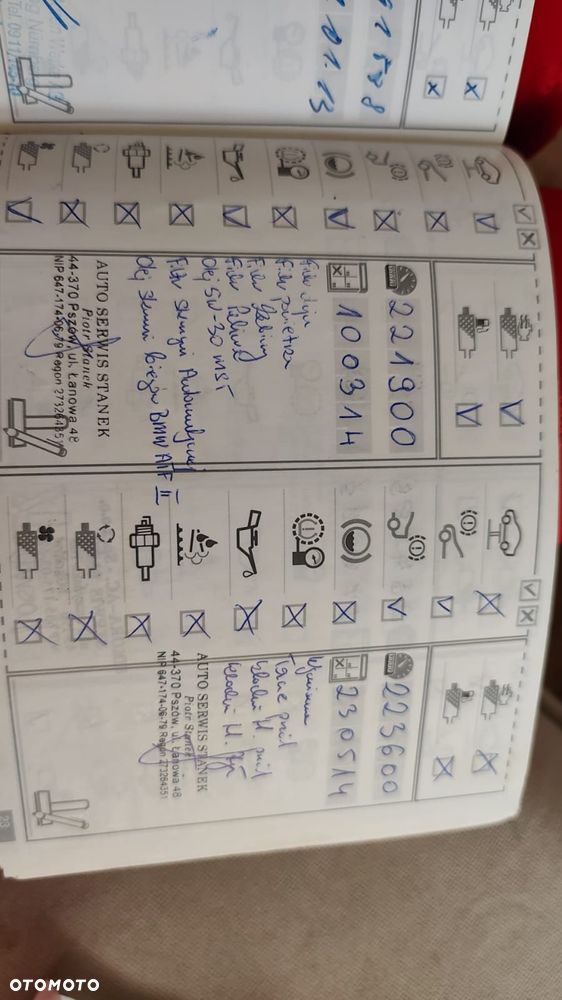 11548
101.13
221900
100314
Filtr oleju
Filtr powietrza
Filtr Kabiny
Filtr Paliwa
Olej 5W-30 MST
Filtr Skrzyni Automatycznej
Olej Skrzyni Biegów BMW ATF III
AUTO SERWIS STANEK
Piotr Stanek
44-370 Pszów, ul. Łanowa 48
NIP 647-174-06-79 Regon 273264351
223600
230514
Wymiana
Tarcze przód
klocki H. przód
klocki H. tył
AUTO SERWIS STANEK
Piotr Stanek
44-370 Pszów, ul. Łanowa 48
NIP 647-174-06-79 Regon 273264351
23
OTOMOTO